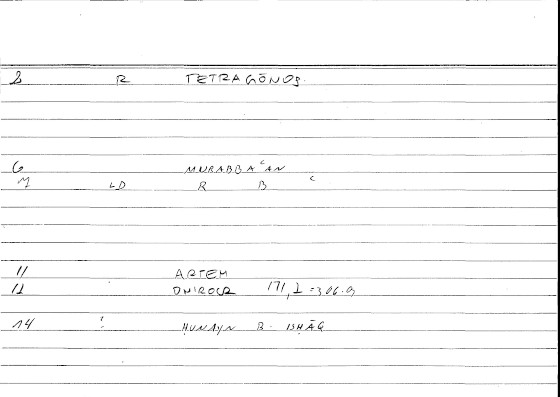 8 R TETRAGŌNOS.
6 MURABBAʿAN
M LD R B ʿ
11 ARTEM
12 ONIROCR 171,2 = 306.9
14 : ḤUNAYN B. ISḤĀQ